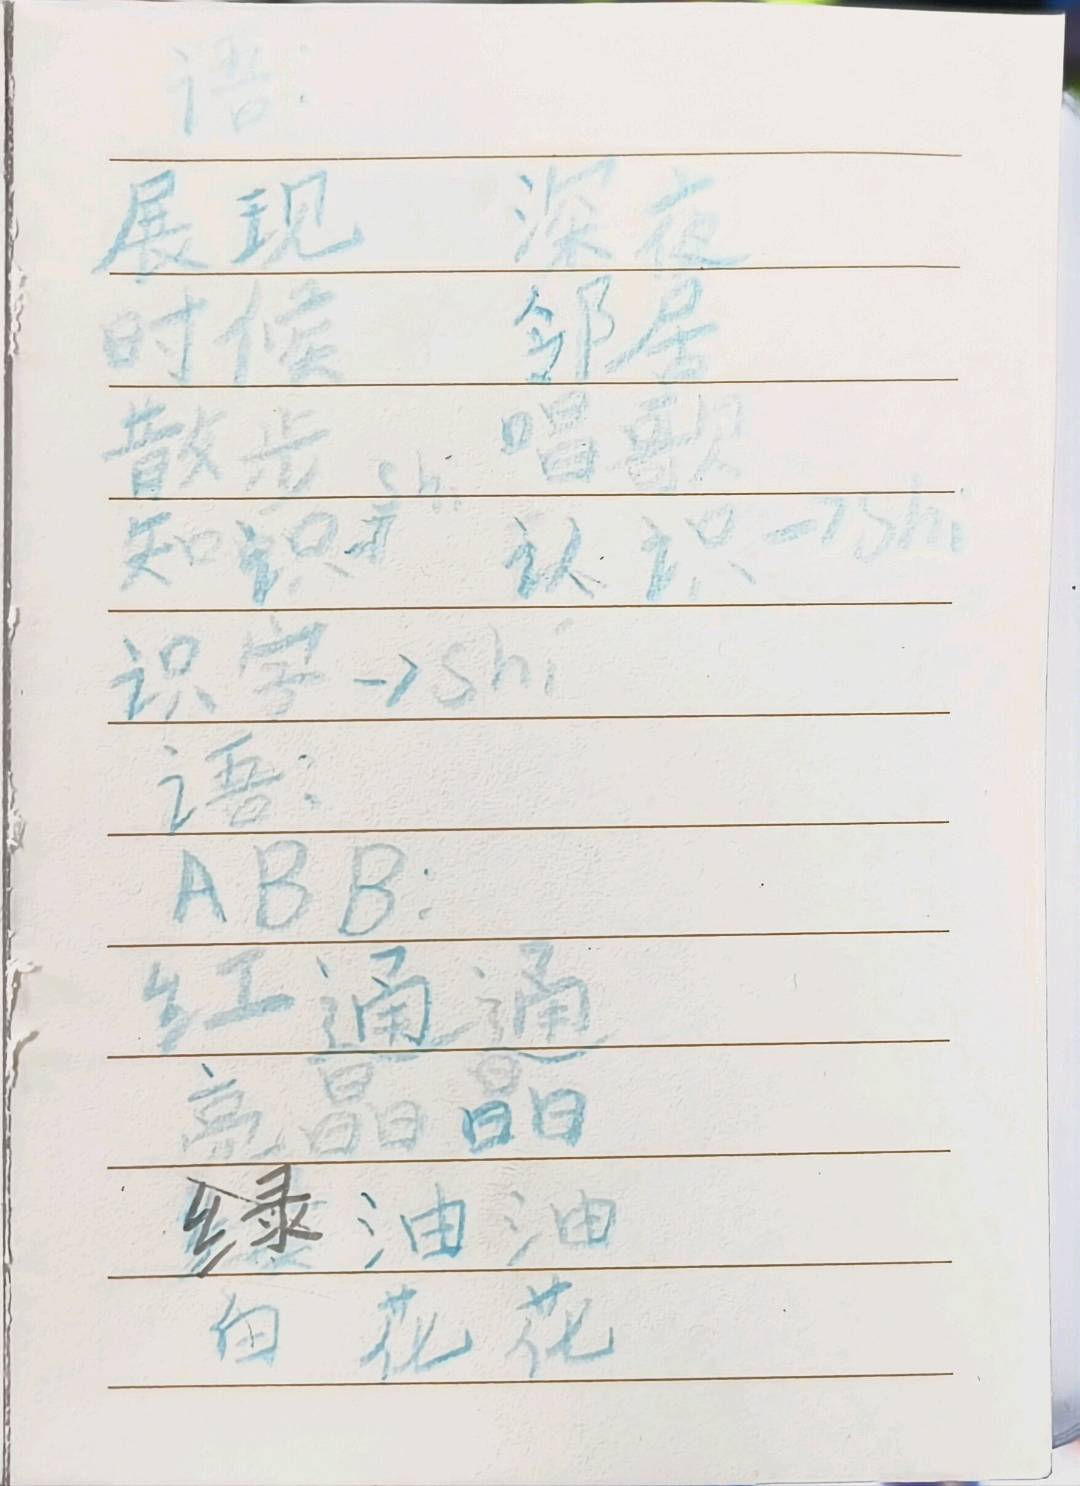 语:
展现 深夜
时候 邻居
散步 唱歌
知识→shi 认识→shi
识字→shi
语:
ABB:
红通通
亮晶晶
绿油油
白花花